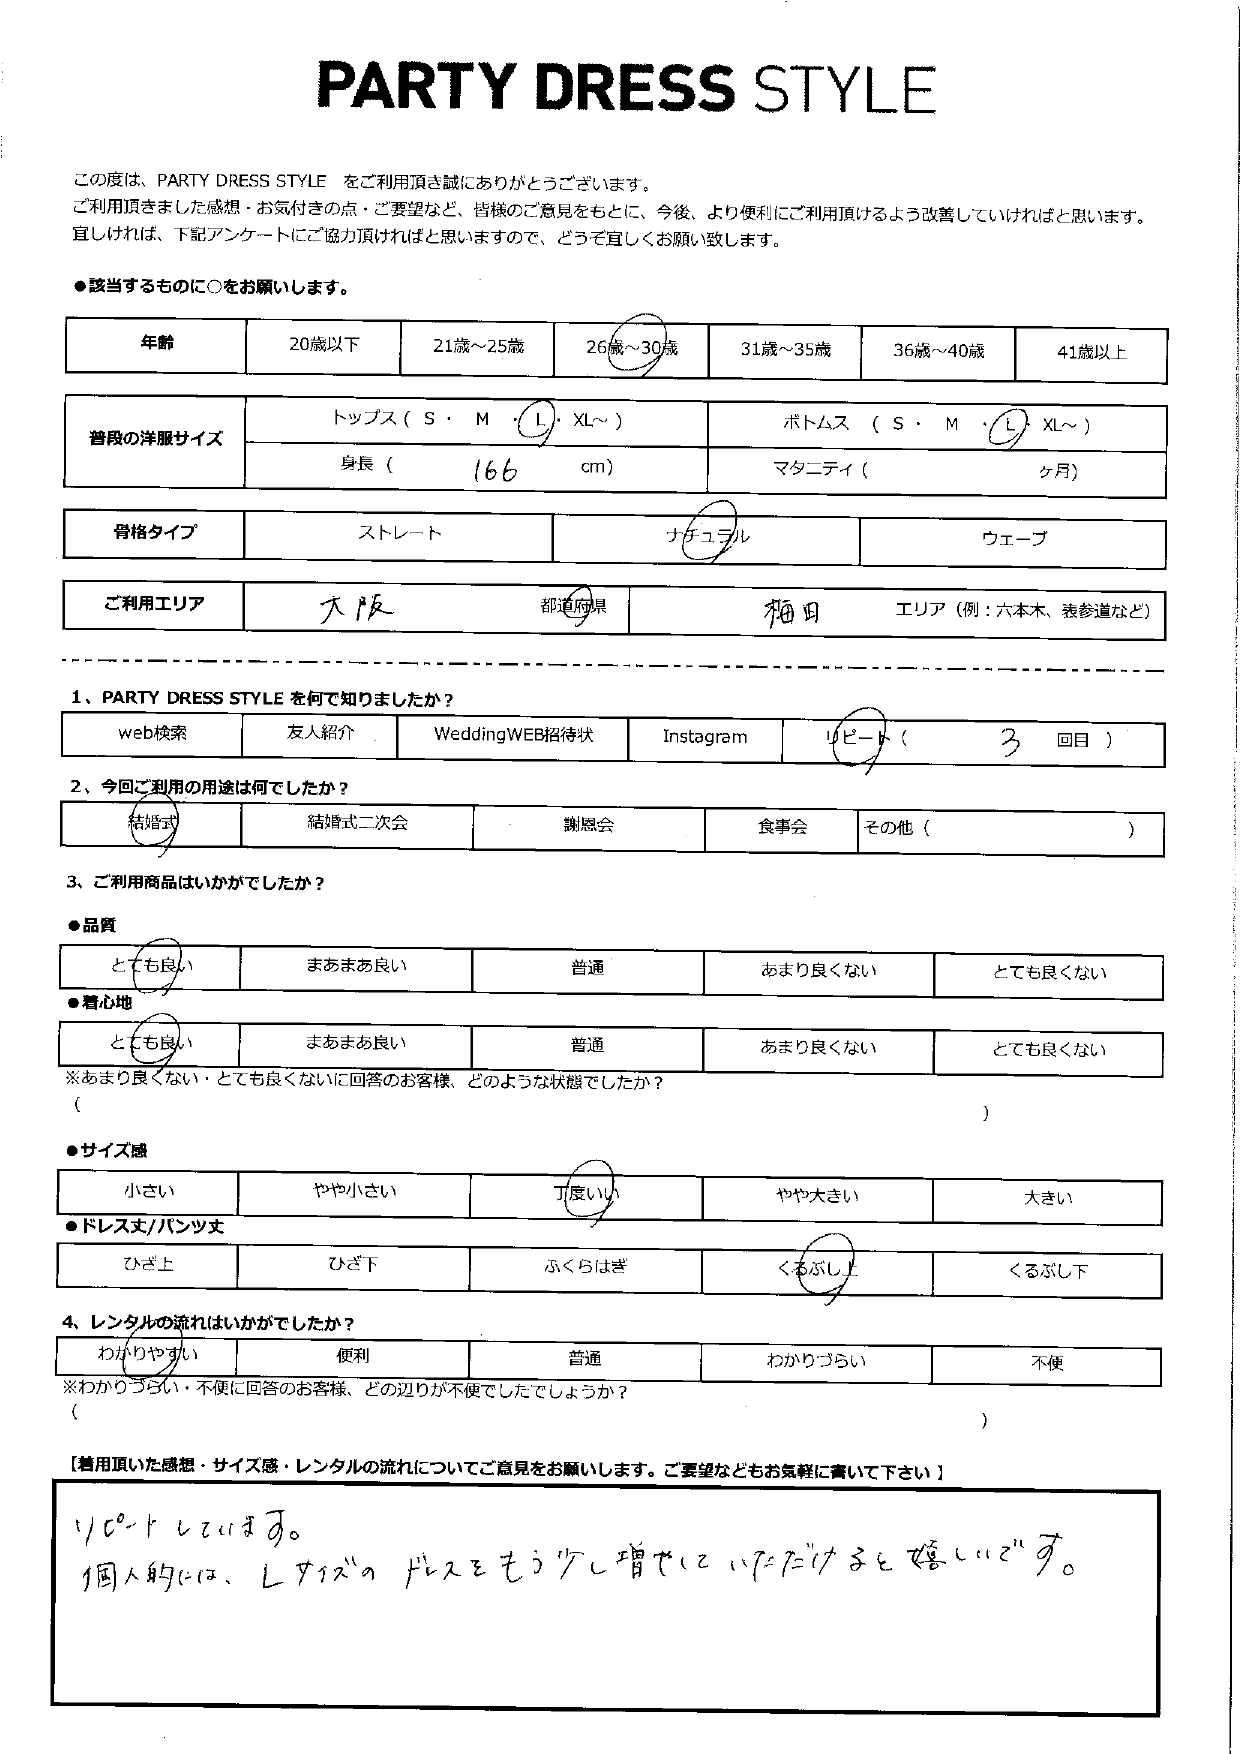 PARTY DRESS STYLE
この度は、PARTY DRESS STYLE をご利用頂き誠にありがとうございます。
ご利用頂きました感想・お気付きの点・ご要望など、皆様のご意見をもとに、今後、より便利にご利用頂けるよう改善していければと思います。
宜しければ、下記アンケートにご協力頂ければと思いますので、どうぞ宜しくお願い致します。
●該当するものに○をお願いします。
年齢 20歳以下 21歳～25歳 26歳～30歳 31歳～35歳 36歳～40歳 41歳以上
普段の洋服サイズ トップス ( S ・ M ・ L ・ XL～ ) ボトムス ( S ・ M ・ L ・ XL～ )
身長 ( 166 cm) マタニティ ( ヶ月)
骨格タイプ ストレート ナチュラル ウェーブ
ご利用エリア 大阪 都道府県 梅田 エリア（例：六本木、表参道など）
1、PARTY DRESS STYLE を何で知りましたか？
web検索 友人紹介 WeddingWEB招待状 Instagram リピート ( 3 回目 )
2、今回ご利用の用途は何でしたか？
結婚式 結婚式二次会 謝恩会 食事会 その他 ( )
3、ご利用商品はいかがでしたか？
●品質
とても良い まあまあ良い 普通 あまり良くない とても良くない
●着心地
とても良い まあまあ良い 普通 あまり良くない とても良くない
※あまり良くない・とても良くないに回答のお客様、どのような状態でしたか？
( )
●サイズ感
小さい やや小さい 丁度いい やや大きい 大きい
●ドレス丈/パンツ丈
ひざ上 ひざ下 ふくらはぎ くるぶし上 くるぶし下
4、レンタルの流れはいかがでしたか？
わかりやすい 便利 普通 わかりづらい 不便
※わかりづらい・不便に回答のお客様、どの辺りが不便でしたでしょうか？
( )
【着用頂いた感想・サイズ感・レンタルの流れについてご意見をお願いします。ご要望などもお気軽に書いて下さい】
リピートしています。
個人的には、Lサイズの ドレスをもう少し増やして いただけると嬉しいです。